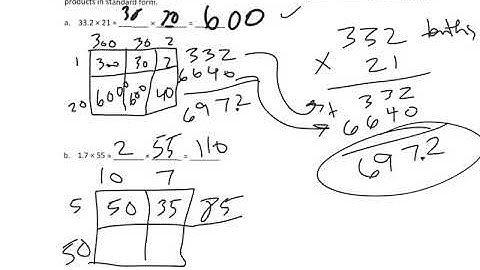 products in standard form.
a. 33.2 × 21 ≈ 30 × 20 = 600 ✓
300 30 2
1 300 30 2
20 6000 600 40
332
6640
697.2
332 tenths
× 21
+ 332
6640
697.2
b. 1.7 × 55 ≈ 2 × 55 = 110
10 7
5 50 35 85
50